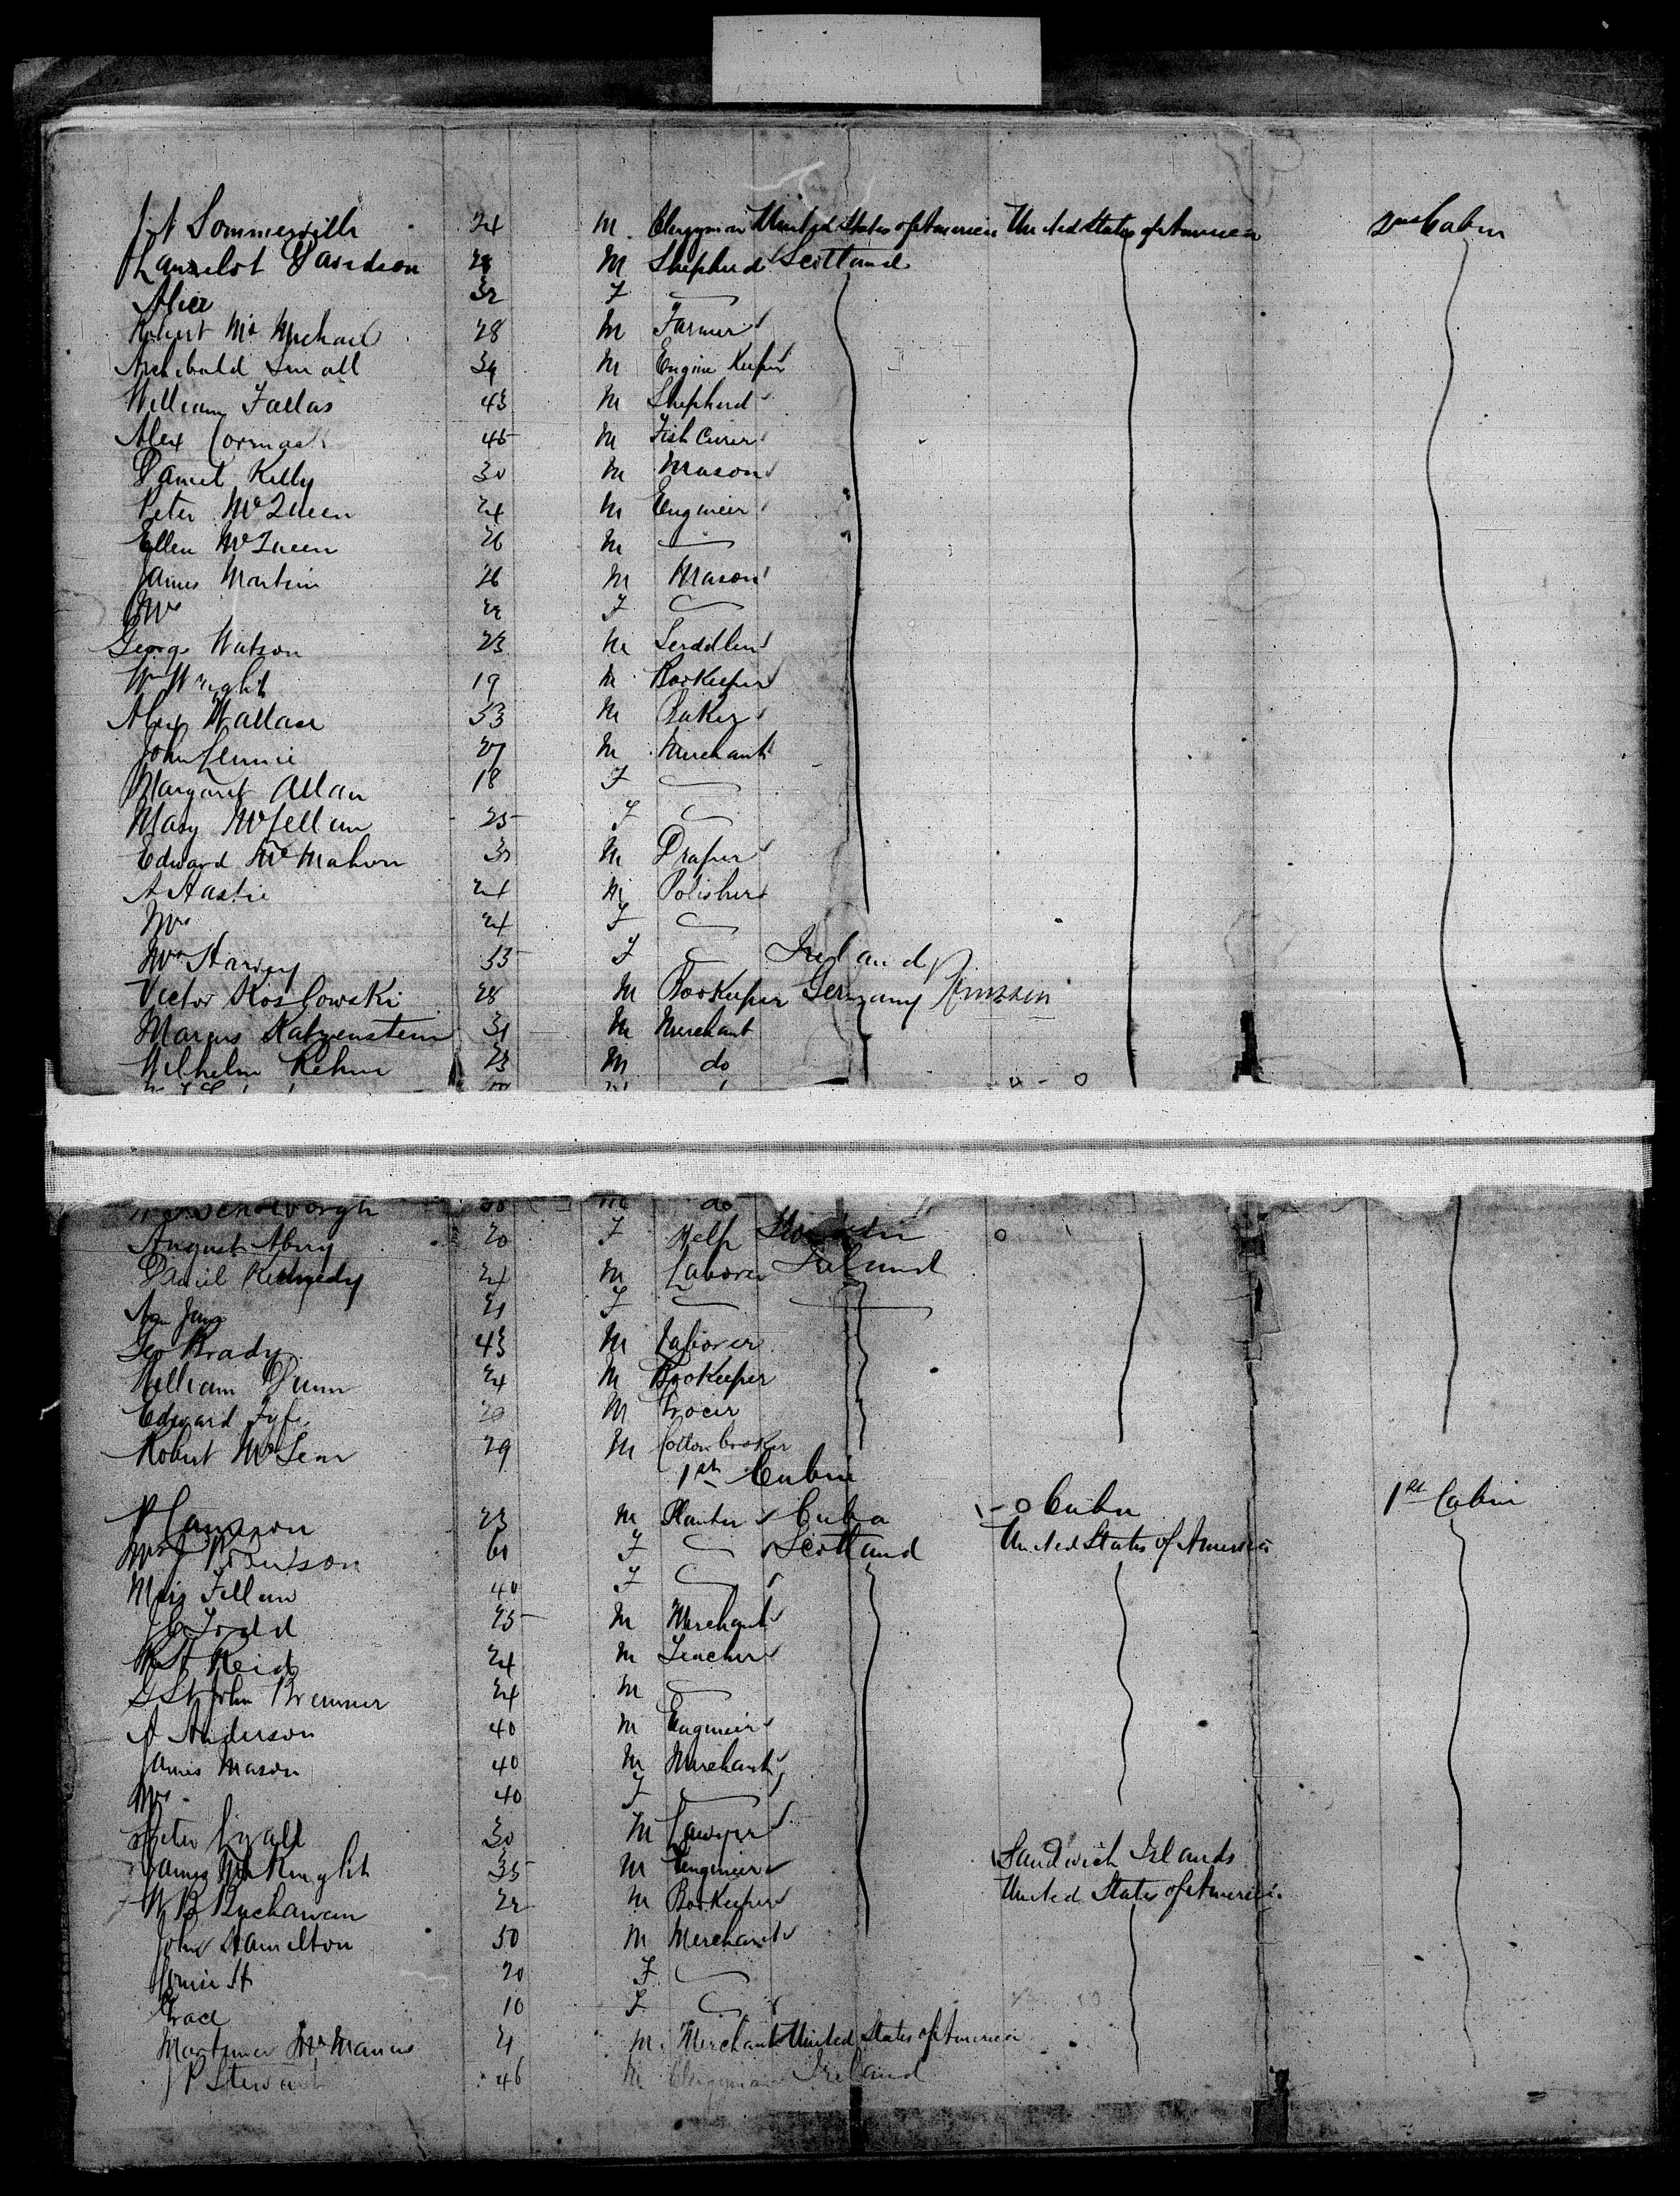 Sommerville 24 M Clergyman United States of America United States of America 2nd Cabin
Lancelot Davidson 28 M Shepherd Scotland
Alice 32 F
Robert Mc Michael 28 M Farmer
Archibald Small 34 M Engine Keeper
William Fallas 43 M Shepherd
Alex Cormack 45 M Fish Curer
Daniel Kelly 30 M Mason
Peter McQueen 24 M Engineer
Ellen McQueen 26 M
James Martin 26 M Mason
Mrs 22 F
George Watson 23 M
Wm Wright 19 M Bookeeper
Alex Wallace 53 M Baker
John Rennie 27 M Merchant
Margaret Allan 18 F
Mary McLellan 25 F
Edward McMahon M Draper
A Hastie 24 M Polisher
Mrs 24 F
Mrs Harvey 35 F Ireland
Victor Koslowski 28 M Bookeeper Germany
Marcus Katzenstein 31 M Merchant
Wilhelm Rehm 23 M do
do
August Abery 20 F Help
Daniel Kennedy 24 M Laborer Ireland
21 F
Geo Brady 43 M Laborer
William Dunn 24 M Bookeeper
Edward Fyfe 20 M Grocer
Robert McLean 29 M Cotton broker
1st Cabin
23 M Planter Cuba Cuba 1st Cabin
Mrs J Robertson 60 F Scotland United States of America
40 F
Todd 25 M Merchant
Reid 24 M Teacher
G St John Bremner 24 M
A Anderson 40 M Engineer
James Mason 40 M Merchant
Mrs 40 F
Peter Lyall 30 M Lawyer
James McKnight 35 M Engineer Sandwich Islands
W B Buchanan 22 M Bookeeper United States of America
John Hamilton 50 M Merchant
20 F
Grace 10 F
Mortimer McManus 21 M Merchant United States of America
J P Stewart 46 M Clergyman Ireland